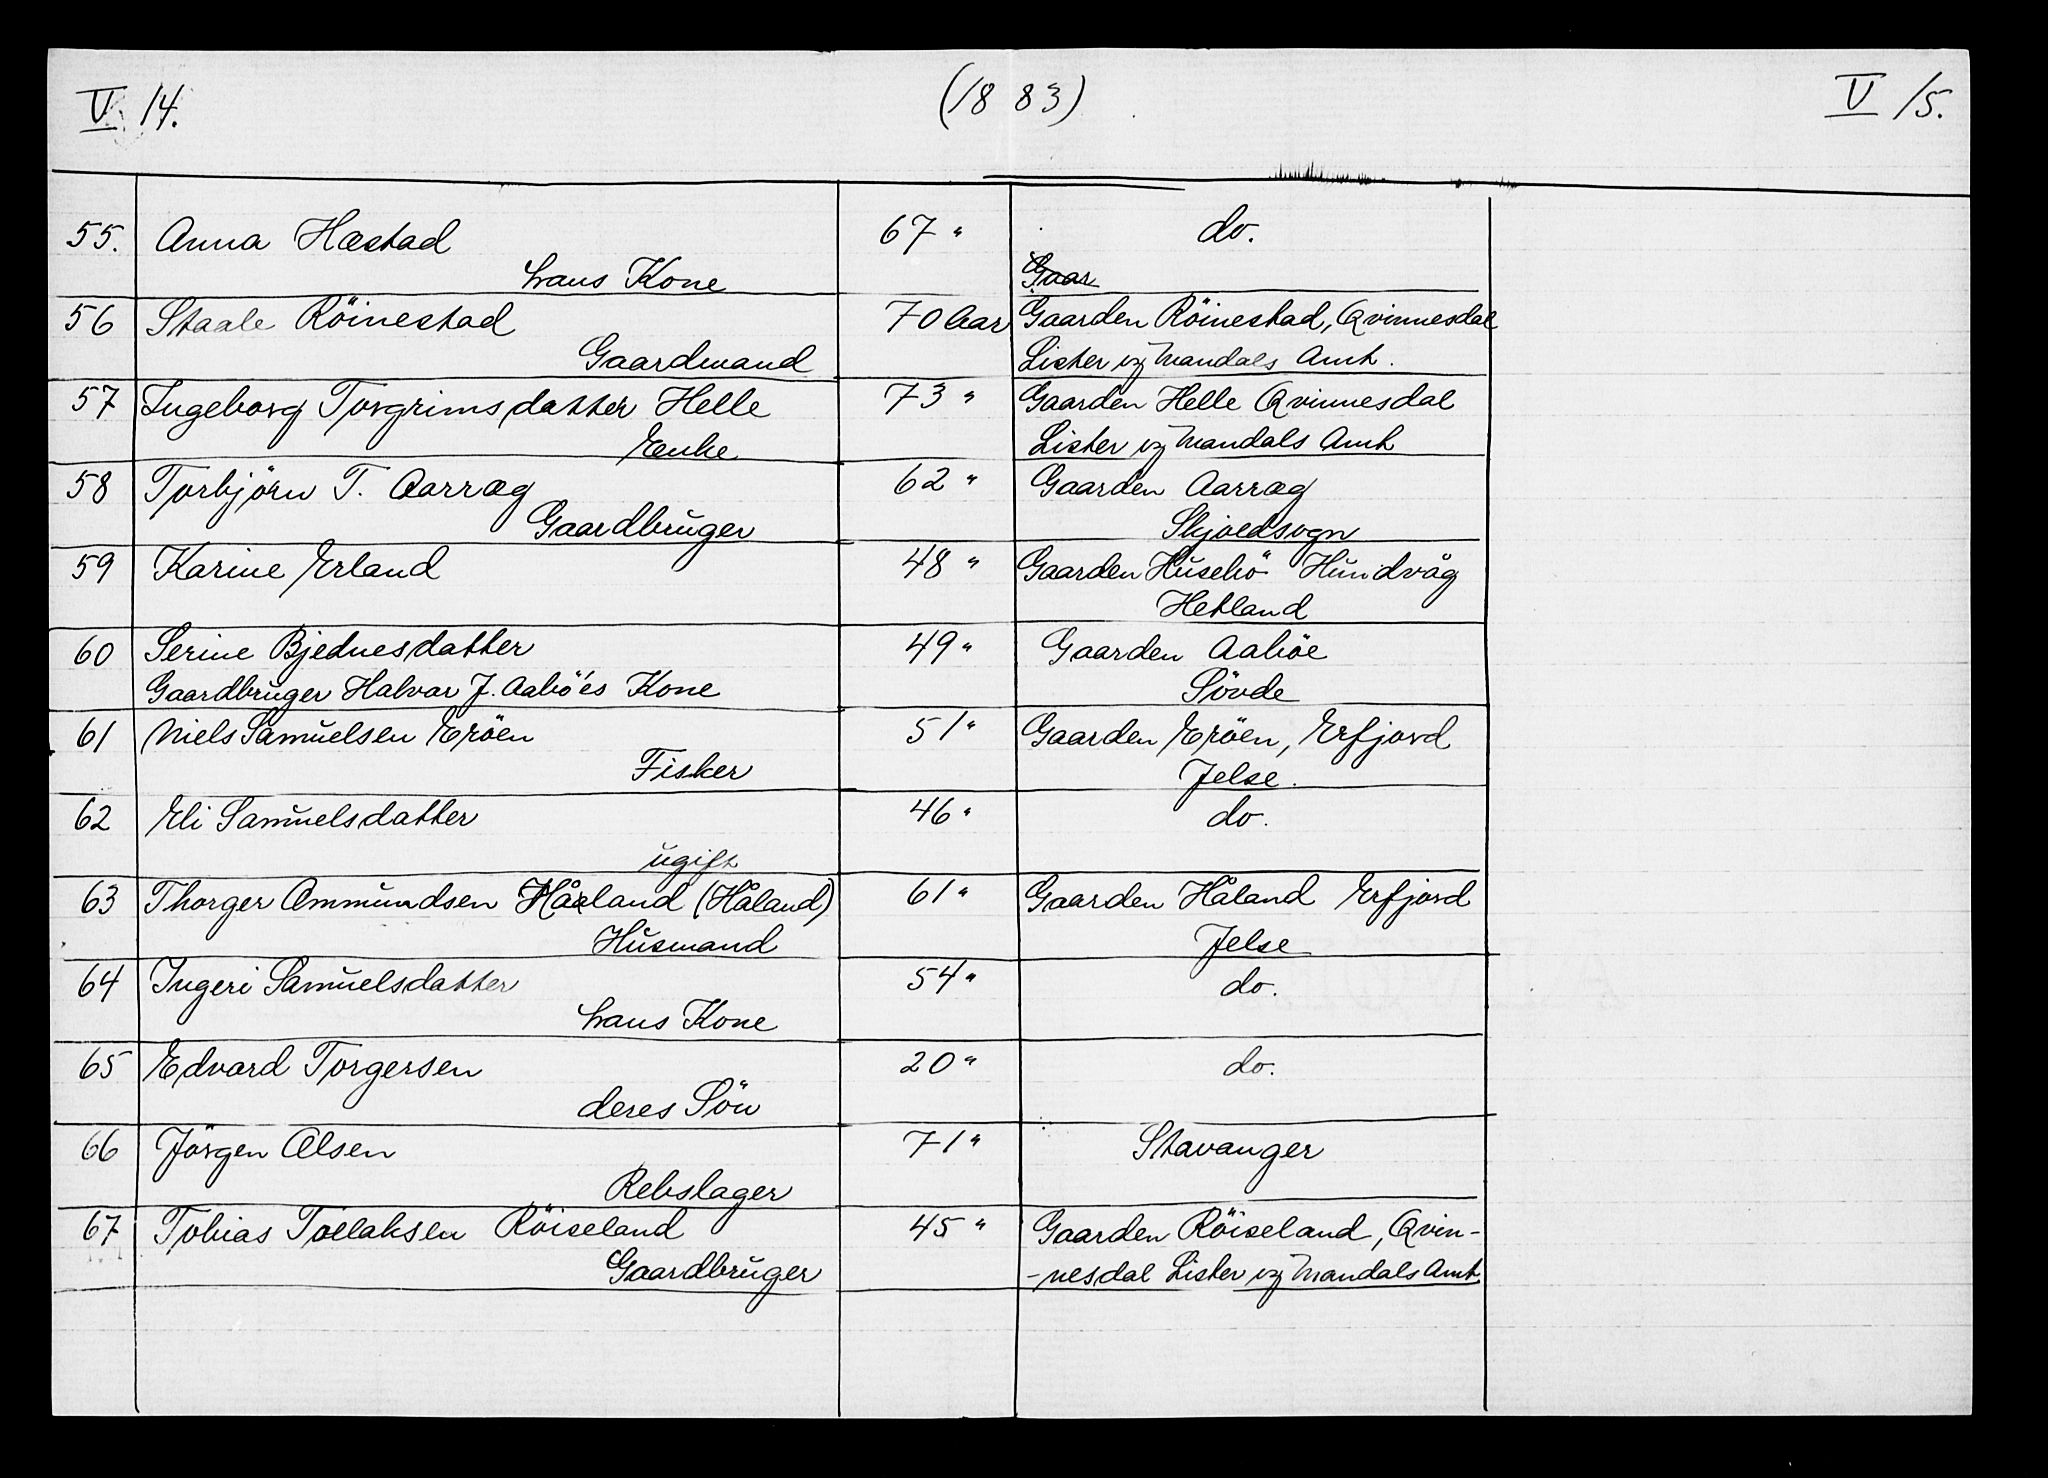 V 14. (1883) V 15.
55. Anna Hæstad 67 " do.
hans Kone Gaar
56 Staale Röinestad 70 Aar Gaarden Röinestad, Qvinnesdal
Gaardmand Lister og Mandals Amt.
57 Ingeborg Torgrimsdatter Helle 73 " Gaarden Helle Qvinnesdal
Enke Lister og Mandals Amt
58 Torbjörn T. Aarræg 62 " Gaarden Aarræg
Gaardbruger Skjoldsogn
59 Karine Erland 48 " Gaarden Husebö Hundvåg
Hetland
60 Serine Bjednesdatter 49 " Gaarden Aaböe
Gaardbruger Halvar J. Aaböes Kone Sövde
61 Niels Samuelsen Eröen 51 " Gaarden Eröen, Erfjord
Fisker Jelse.
62 Eli Samuelsdatter 46 " do.
ugift
63 Thorger Ommundsen Håaland (Håland) 61 " Gaarden Håland Erfjord
Husmand Jelse
64 Ingeri Samuelsdatter 54 " do.
hans Kone
65 Edvard Torgersen 20 " do.
deres Sön
66 Jörgen Olsen 71 " Stavanger
Rebslager
67 Tobias Tollaksen Röiseland 45 " Gaarden Röiseland, Qvin-
Gaardbruger -nesdal Lister og Mandals Amt